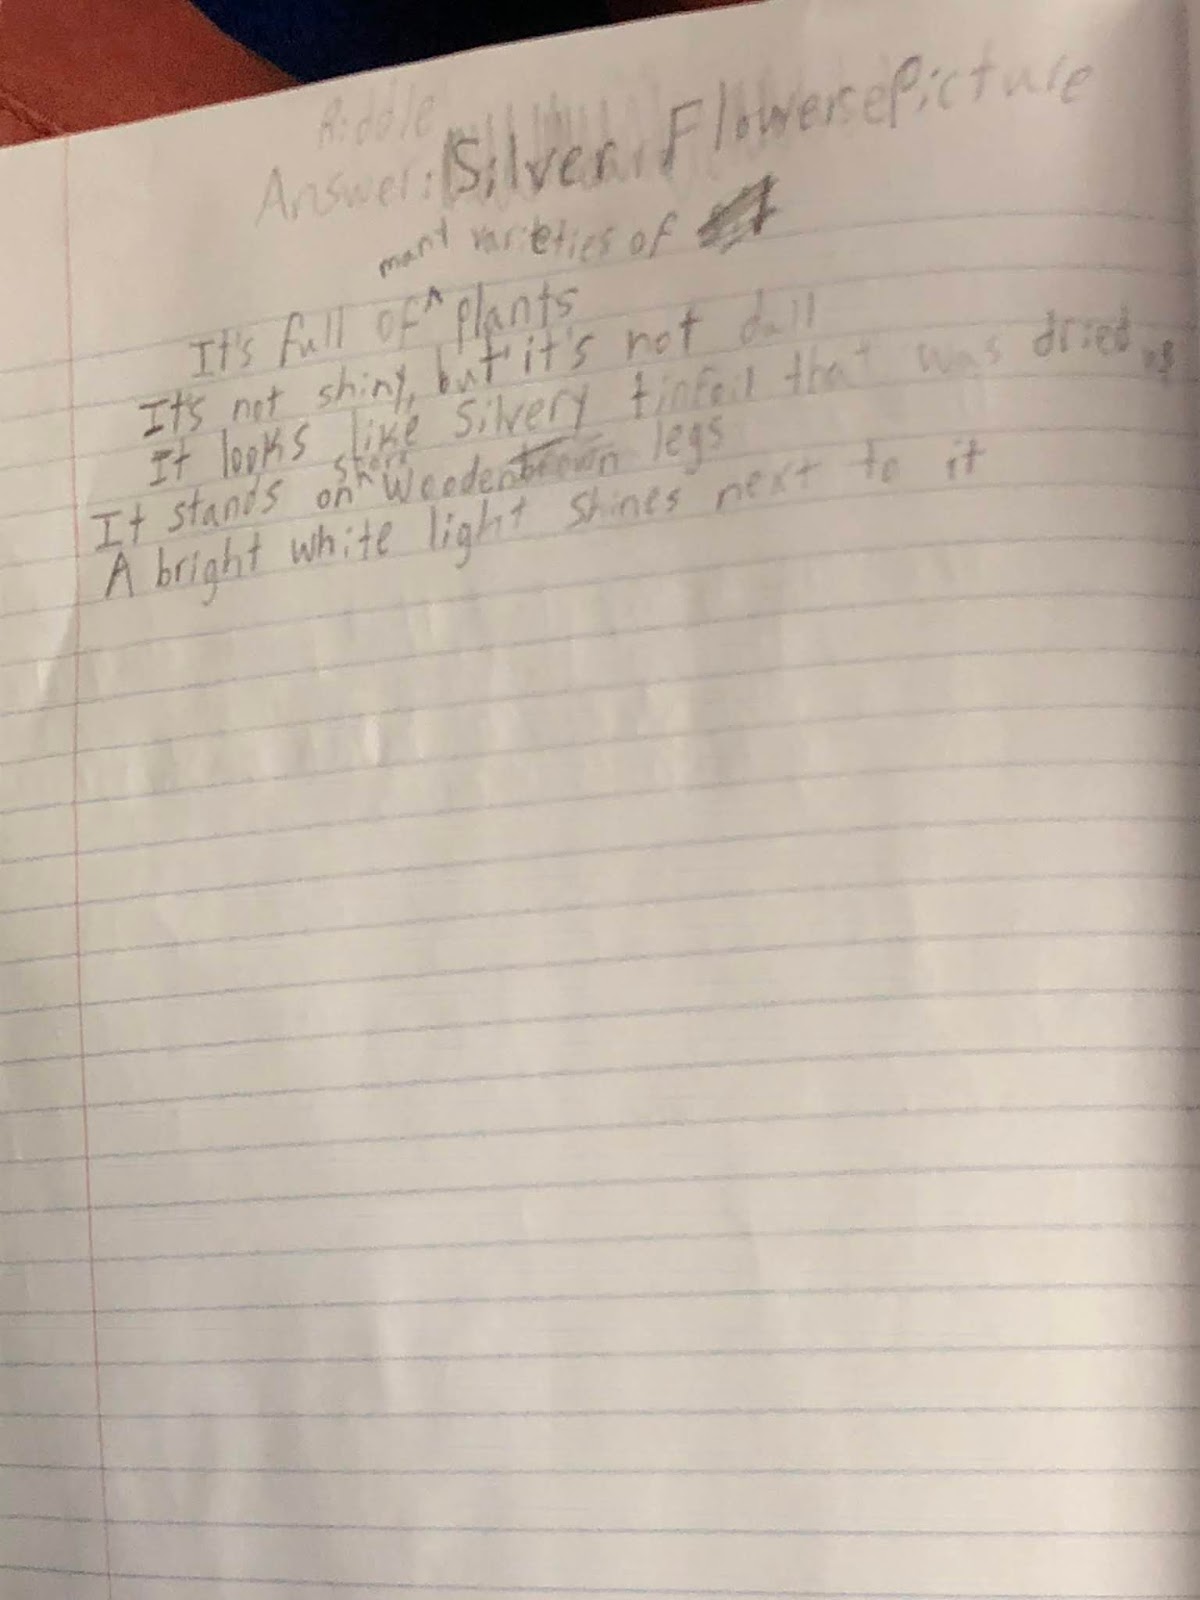 Riddle
Answer: Silver Flowerse Picture
many varieties of
It's full of ^ plants
It's not shiny, but it's not dull
It looks like silvery tinfoil that was dried up
short
It stands on ^ Wooden brown legs
A bright white light shines next to it